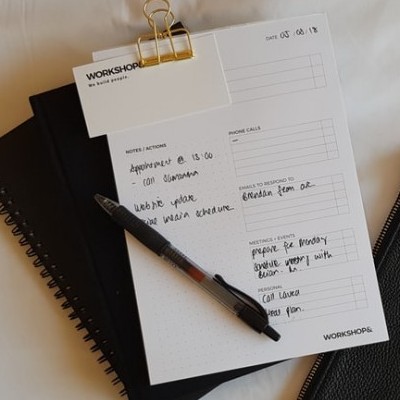 WORKSHOP&
We build people.
DATE 05 : 03 : 18
NOTES / ACTIONS
Appointment @ 13:00
- Call
Website update
media schedule
PHONE CALLS
EMAILS TO RESPOND TO
Brendan from
MEETINGS / EVENTS
prepare for Monday
meeting with
Brian.
PERSONAL
Call
plan.
WORKSHOP&